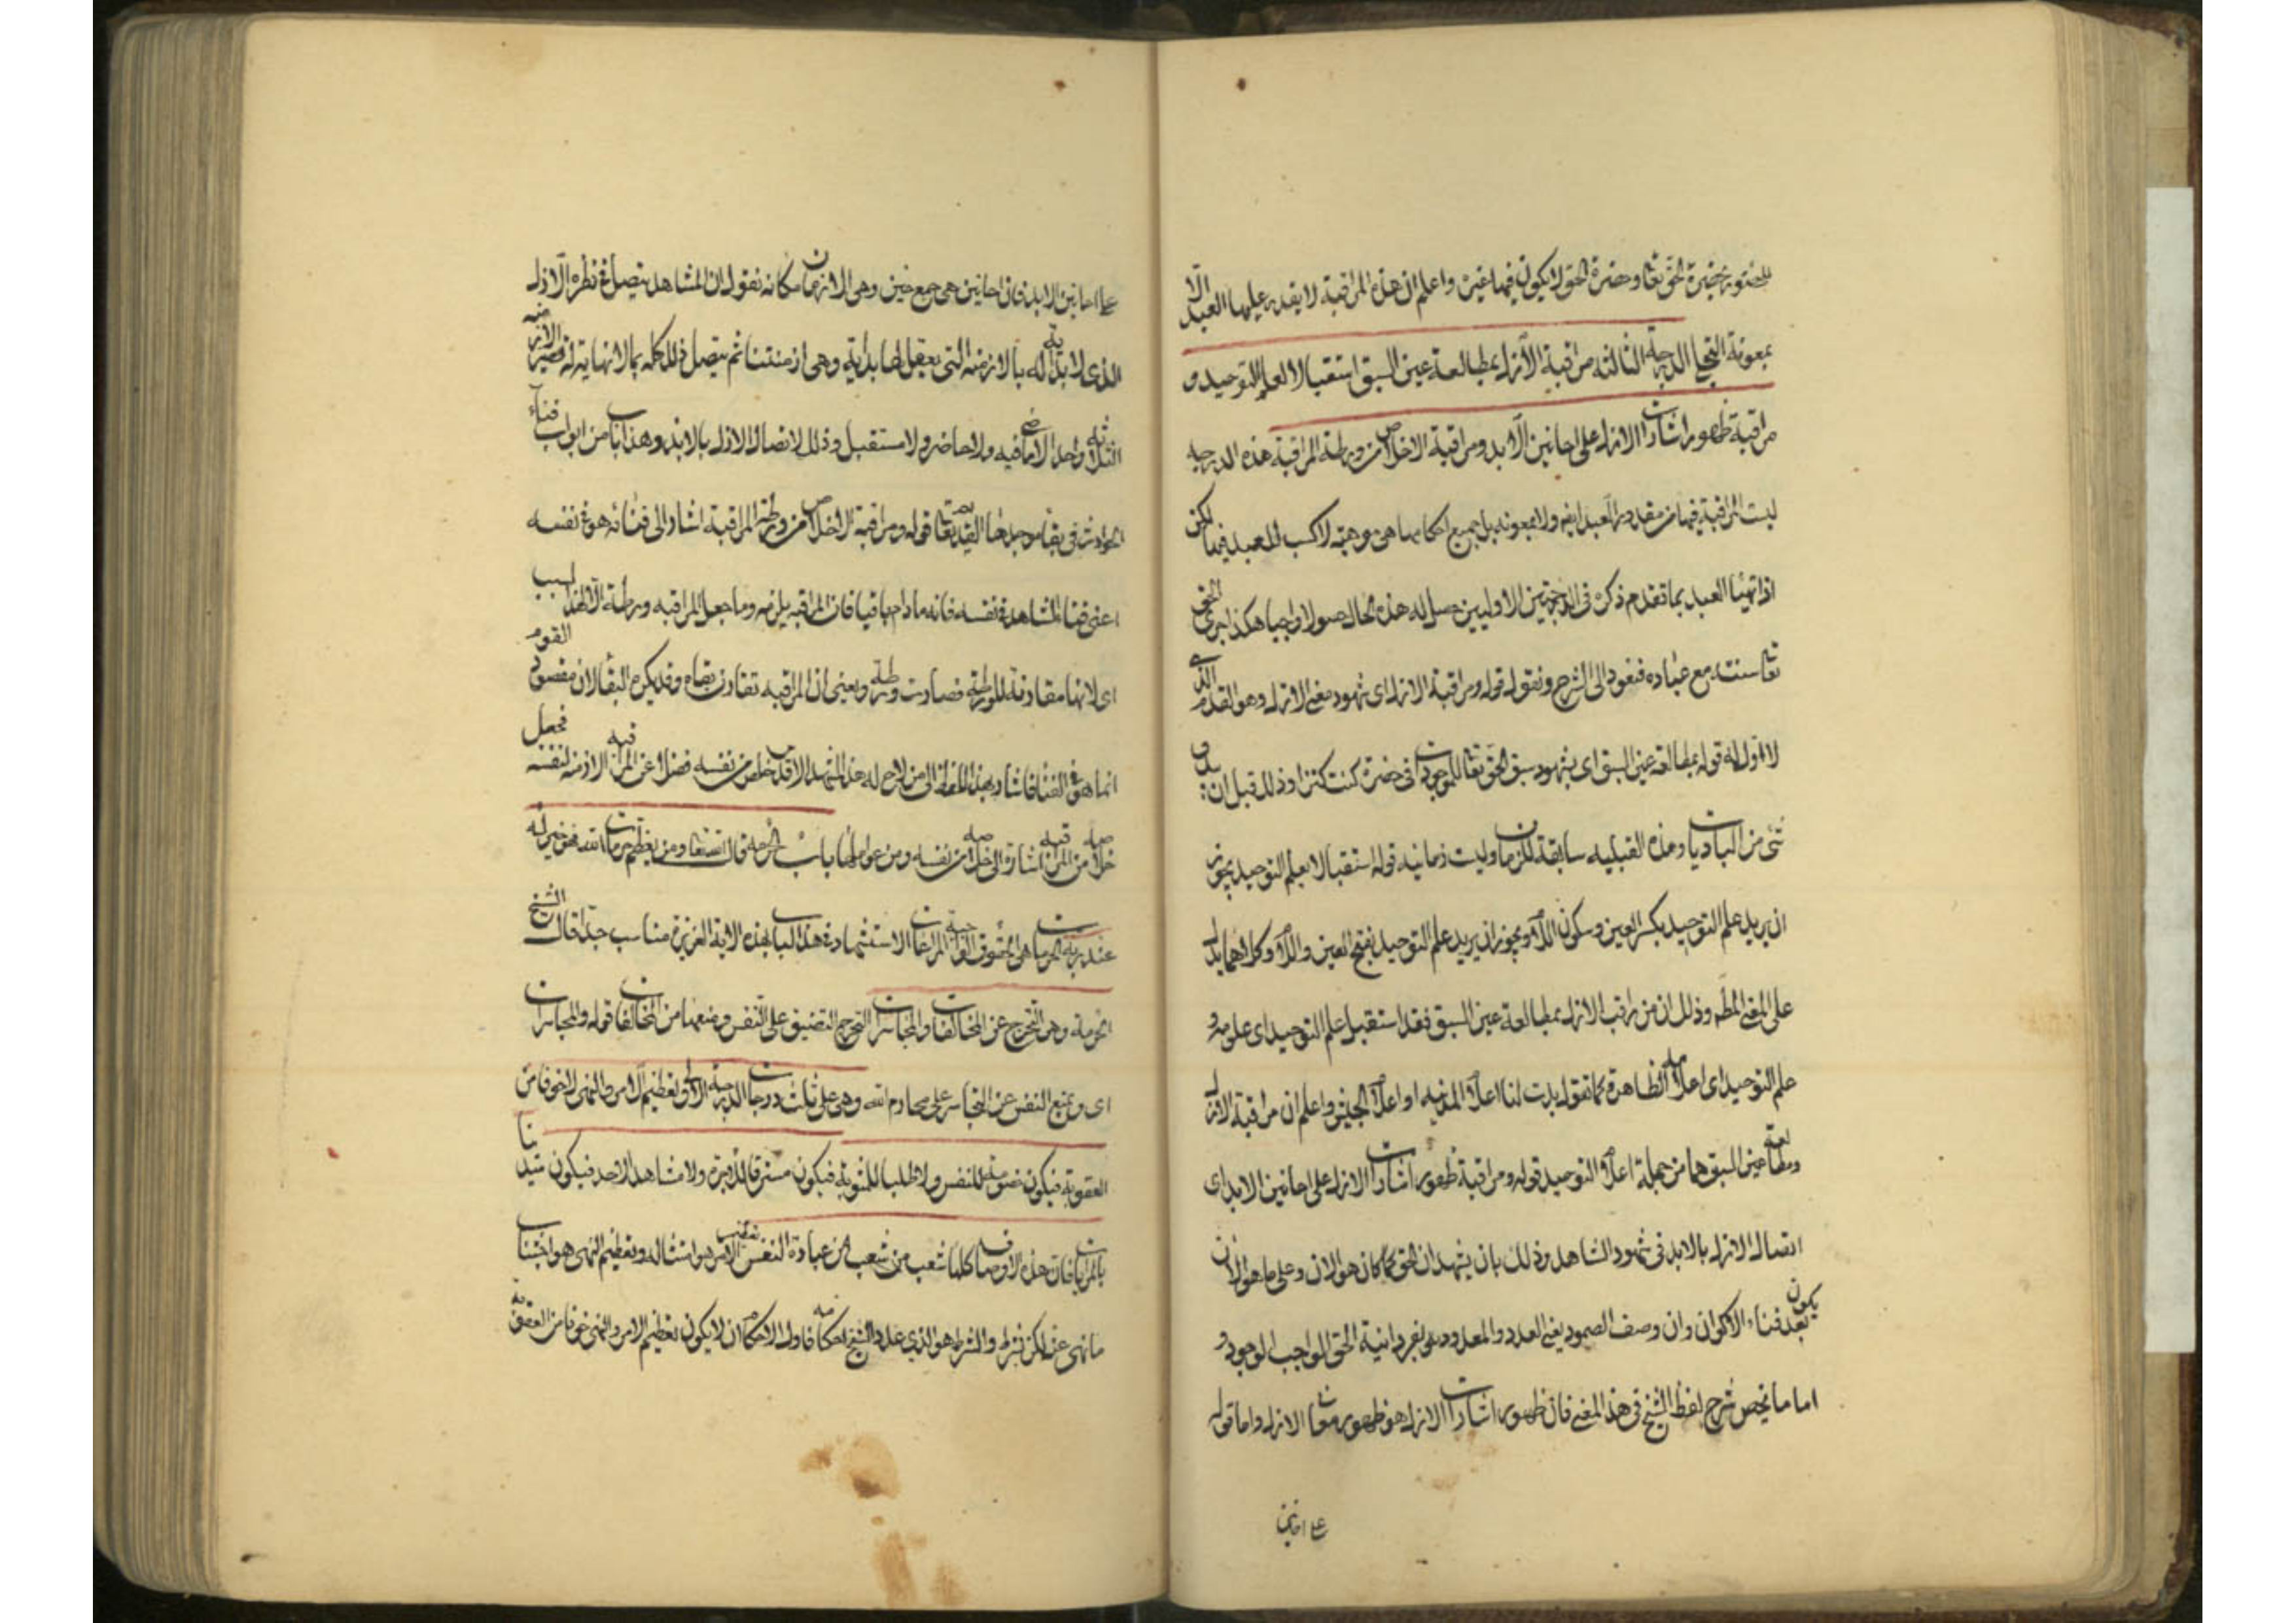 للحضور بحضرة الحق تعا وحضرة الحق لا يكون فيها غيره واعلم ان هذه المراقبة لا يقدر عليها العبد الا
بمعونة التجلي الدرجة الثالثة مراقبة الأزل بمطالعة عين السبق استقبالا لعلم التوحيد و
مراقبة ظهور اشارات الازل على احايين الأبد ومراقبة الاخلاص من ورطة المراقبة هذه الدرجة
ليست المراقبة فيها من مقدور العبد ولا بمعونه بل جميع احكامها هى موهبة لا كسب للعبد فيها لكن
اذا تهيّا العبد بما تقدم ذكره فى الدرجتين الاوليين حصل له هذه الحال حصولا واجبا هكذا اجرى الحق
تعا سنته مع عباده فنعود الى الشرح ونقول قوله ومراقبة الازل اى شهود معنى الازل وهو القدم الذى
لا اول له قوله بمطالعة عين السبق اى بشهود سبق الحق تعا للموجودات فى حضرة كنت كنزا وذلك قبل ان يبدو
شى من الباديات وهذه القبلية سابقة للزمان وليست زمانية قوله استقبالا لعلم التوحيد يجوز
ان يريد علم التوحيد بكسر العين وسكون اللام ويجوز ان يريد علم التوحيد بفتح العين واللام وكلاهما يدل
على المعنى المط وذلك ان من راقب الازل بمطالعة عين السبق فقد استقبل علم التوحيد اى علمه و
علم التوحيد اى اعلامه الظاهرة كما تقول بدت لنا اعلام المدينة او اعلام الجيش واعلم ان مراقبة الازل
ومطالعة عين السبق هما من جملة اعلام التوحيد قوله ومراقبة ظهور اشارات الازل على احايين الابد اى
اتصال الازل بالابد فى شهود الشاهد وذلك بان يشهد ان الحق كما كان هو الان وعلى ما هو الان
يكون بعد فناء الاكوان وان وصف الصمود يغنى العدد والمعدود في فردانية الحق الواجب الوجود
اما ما يخص شرح لفظ الشيخ فى هذا المعنى فان ظهور اشارات الازل هو ظهور معانى الازل واما قوله
على احايين
على احايين الابد فان احايين هى جمع حين وهى الازمان فكانه يقول ان المشاهد يتصل فى نظره الازل
الذى لا بداية له بالازمنه التى يعقل لها بداية وهى ازمنتنا ثم يتصل ذلك كله بما لا نهاية له فتصير الازمنه
الثلاثه واحدا لا ماضى فيه ولا حاضر ولا مستقبل وذلك لاتصال الازل بالابد وهذا باب من ابواب فناء
الحوادث فى بقاء موجدها القديم تعا قوله ومراقبة الاخلاص من ورطة المراقبة اشار الى فنائه هو فى نفسه
اعنى فناء المشاهد فى نفسه فانه ما دام باقيا فان المراقبه يلزمه وما جعل المراقبه ورطة الا لهذا السبب
اى لانها مقارنة للورطة فصارت ورطة ويعنى ان المراقبه تقارن بقاه وقد يكره البقا لان مقصود القوم
انما هو فى الفنا فاشار بهذا اللفظ الى من لاح له هذا المشهد الاقدس خلص من نفسه فضلا عن المراقبه الازمنه لنفسه فجعل
خلاصه من المراقبه اشارة الى خلاصه من نفسه ومن عوالمها باب الحرمة قال الله تعا ومن يعظم حرمات الله فهو خير له
عند ربه الحرمات هى الحقوق الواجبة المراعات الاستشهاد فى هذا الباب بهذه الاية العزيزة مناسب جدا قال الشيخ
الحرمة وهى التحرج عن المخالفات والمجاسرات التحرج التضييق على النفس ومنعها من المخالفات قوله والمجاسرات
اى ويمنع النفس عن التجاسر على محارم الله وهى على ثلث درجات الدرجة الاولى تعظيم الامر والنهى لا خوفا من
العقوبة فيكون خصومة للنفس ولا طلبا للمثوبة فيكون مسترقا للاجرة ولا مشاهدا لاحد فيكون متدينا
بالمراياة فان هذه الاوصاف كلها شعب من شعب من عبادة النفس تعظيم الامر هو امتثاله وتعظيم النهى هو اجتناب
ما نهى عنه لكن بشرط والشرط هو الذى عدد الشيخ احكامه فاول الاحكام ان لا يكون تعظيم الامر والنهى خوفا من العقوبة